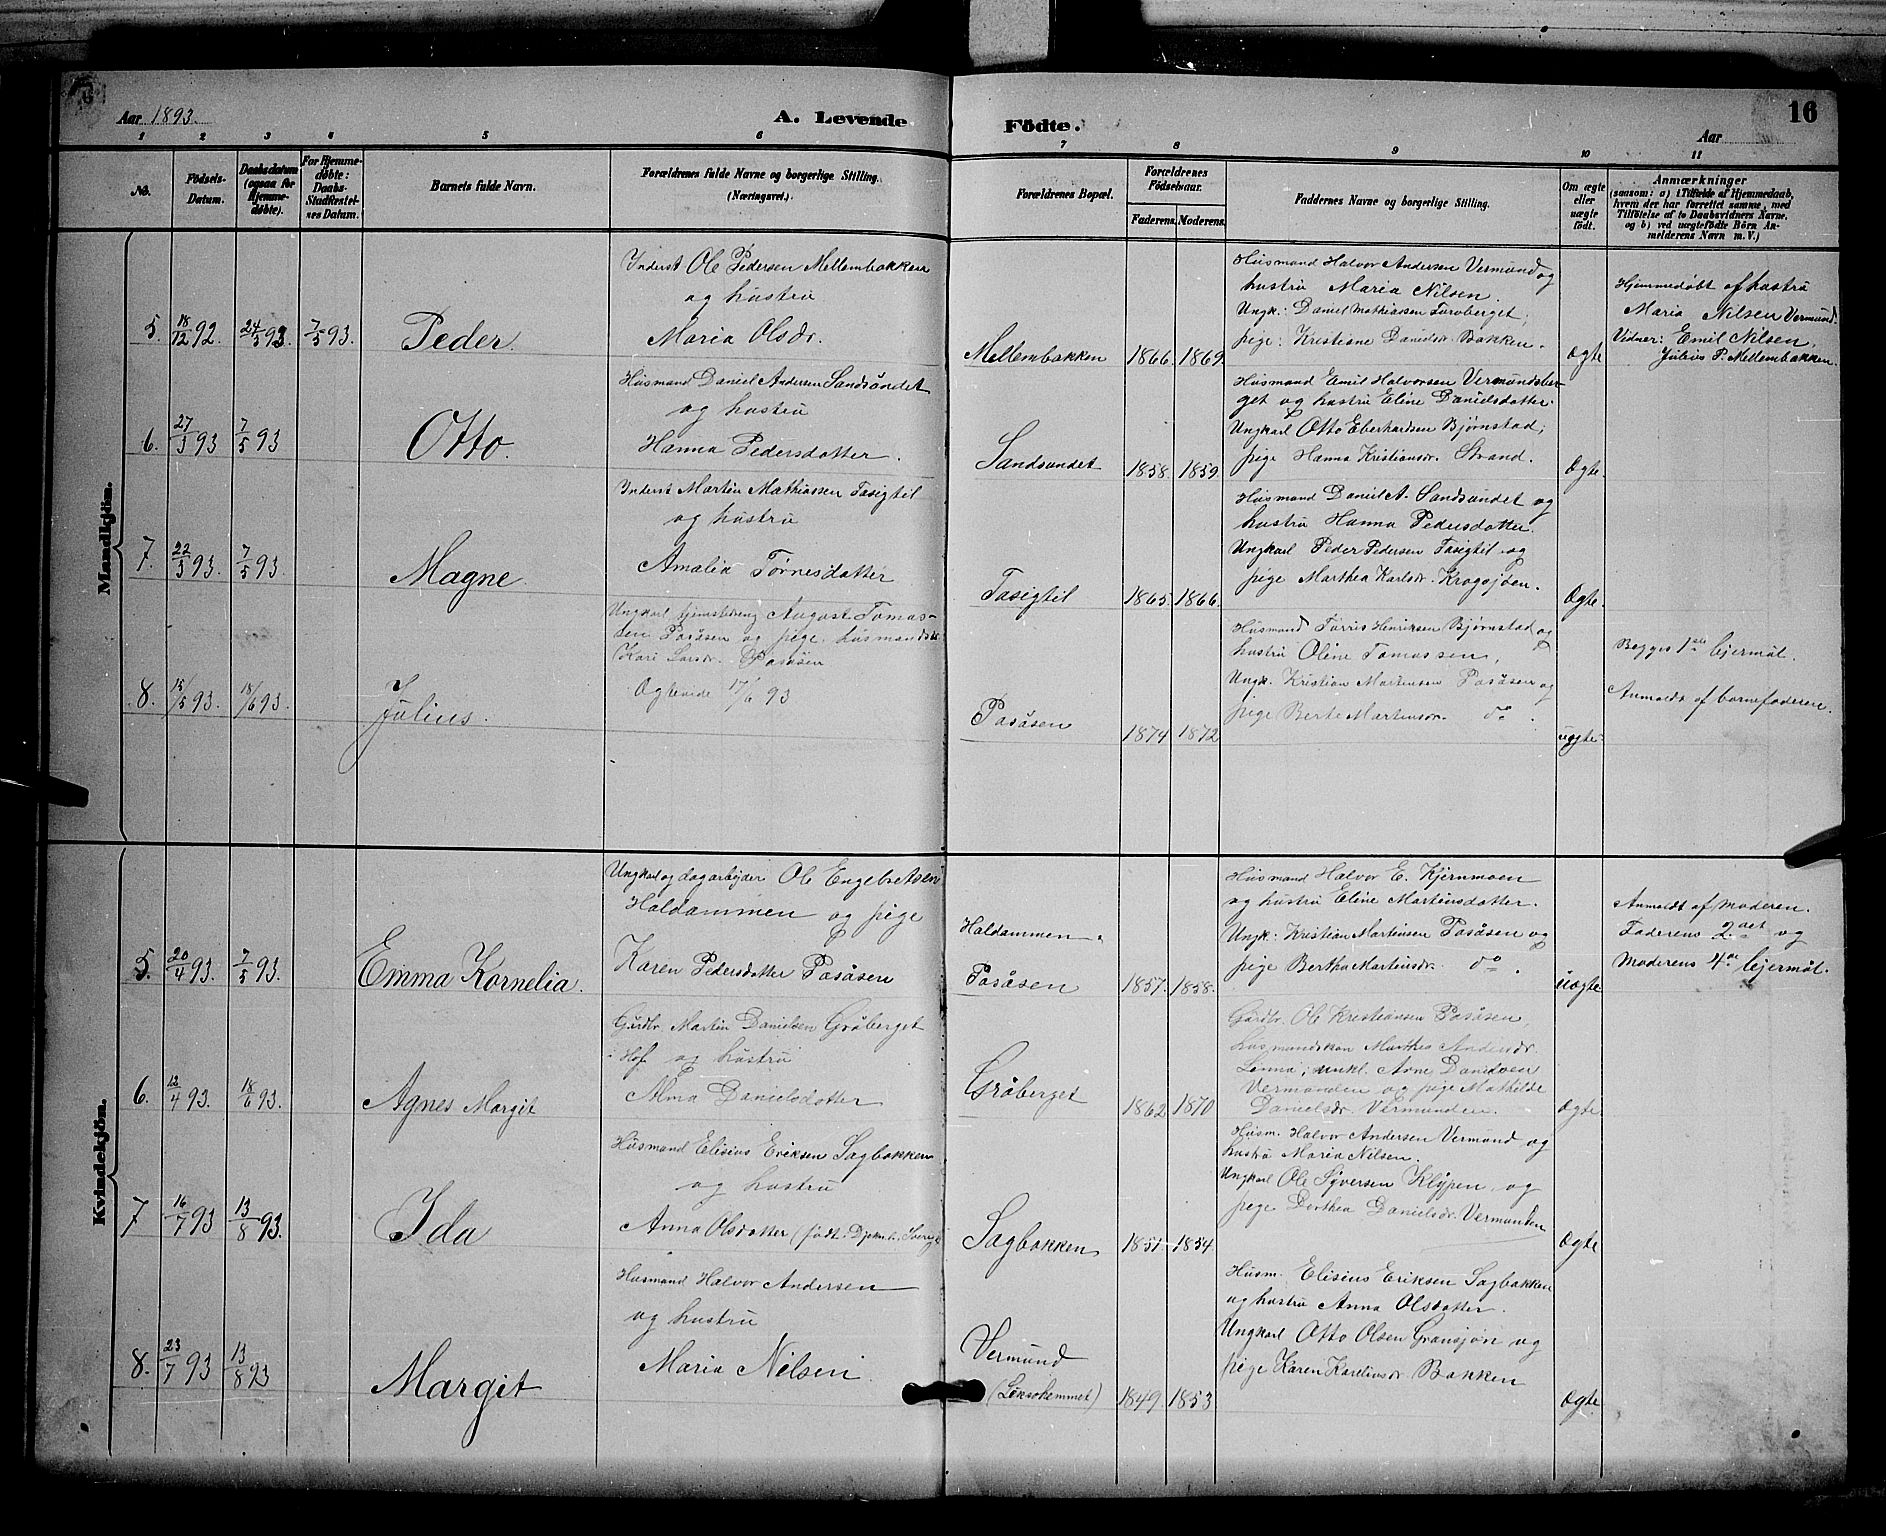 Aar 1893.
A. Levende Födte.
16
Aar
1 2 3 4 5 6 7 8 9 10 11
No.
Födsels-
Datum.
Daabsdatum
(ogsaa for
Hjemme-
döbte).
For Hjemme-
døbte:
Daabs-
Stadfæstel-
ses Datum.
Barnets fulde Navn.
Forældrenes fulde Navne og borgerlige Stilling.
(Næringsvei.)
Forældrenes Bopæl.
Forældrenes
Födselsaar.
Faderens. Moderens.
Faddernes Navne og borgerlige Stilling.
Om ægte
eller
uægte
födt.
Anmærkninger
(saasom: a) i Tilfælde af Hjemmedaab,
hvem der har forrettet samme, med
Tilföielse af to Daabsvidners Navne.
og b) ved uægtefödte Börn An-
melderens Navn m. V.)
Mandkjön.
5. 18/12 92. 24/3 93 7/5 93.
Peder.
Inderst Ole Pedersen Mellembakken
og hustru
Maria Olsdr.
Mellembakken 1866. 1869
Husmand Halvor Andersen Vermund og
hustru Maria Nilsen.
Ungk.: Daniel Mathiassen Furuberget,
pige: Kristiane Danielsdr. Bakken.
Ægte
Hjemmedøbt af hustru
Maria Nilsen Vermund.
Vidner: Emil Nilsen,
Julius P. Mellembakken.
6. 27/3 93 7/5 93
Otto.
Husmand Daniel Andersen Sandsundet
og hustru
Hanna Pedersdatter.
Sandsundet 1858. 1859.
Husmand Emil Halvorsen Vermundsber-
get og hustru Eline Danielsdotter.
Ungkarl Otto Eberhardsen Bjørnstad;
pige Hanna Kristiansdr. Strand.
Ægte.
7. 22/3 93. 7/5 93.
Magne
Inderst Martin Mathiassen Tasigtil
og hustru
Amalia Tørresdatter
Tasigtil 1865. 1866.
Husmand Daniel A. Sandsundet og
hustru Hanna Pedersdotter.
Ungkarl Peder Pedersen Tasigtil og
pige Marthea Karlsdr. Krogsjøen.
Ægte.
8. 15/5 93. 18/6 93.
Julius.
Ungkarl tjenstedreng August Tomas-
sen Pasåsen og pige, husmandsd.
Kari Larsdr. Pasåsen
Ægteviede 17/6 93
Pasåsen 1874 1872
Husmand Tørris Henriksen Bjørnstad og
hustru Oline Tomassen,
Ungk. Kristian Martinsen Pasåsen og
pige Berte Martinsdr. do.
uægte.
Begges 1ste lejermål.
Anmeldt af barnefaderen.
Kvindekjön.
5. 20/4 93. 7/5 93.
Emma Kornelia.
Ungkarl og dagarbejder Ole Engebretsen
Haldammen og pige
Karen Pedersdatter Pasåsen
Haldammen.
Pasåsen 1857. 1858.
Husmand Halvor E. Kjernmoen
og hustru Eline Martinsdatter.
Ungk: Kristian Martinsen Pasåsen og
pige Bertha Martinsdr. do.
uægte
Anmeldt af moderen.
Faderens 2det og
Moderens 4de lejermål.
6. 12/4 93. 18/6 93.
Agnes Margit
Gårdbr. Martin Danielsen Gråberget
i Hof og hustru
Alma Danielsdatter
Gråberget 1862 1870
Gårdbr. Ole Kristiansen Pasåsen,
husmandskon Marthea Andersdr.
Linna; unkl. Arne Danielsen
Vermunden og pige Mathilde
Danielsdr. Vermunden.
Ægte
7 16/7 93 13/8 93.
Ida
Husmand Elisius Eriksen Sagbakken
og hustru
Anna Olsdatter (født i Sverige
Sagbakken 1851 1854
Husm. Halvor Andersen Vermund og
hustru Maria Nilsen.
Ungkarl Ole Syversen Kløpen, og
pige Dorthea Danielsdr. Vermunden
Ægte
8. 23/7 93 13/8 93
Margit
Husmand Halvor Andersen
og hustru
Maria Nilsen.
Vermund
1849. 1853
Husm. Elisius Eriksen Sagbakken
og hustru Anna Olsdatter.
Ungkarl Otto Olsen Gransjøn og
pige Karen Karelinsdr. Bakken
Ægte.